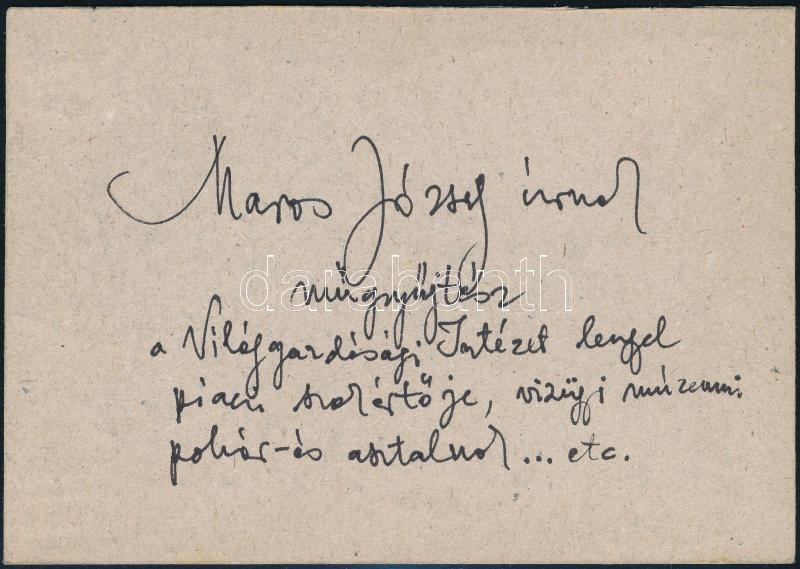 Maros József úrnak
műgyűjtész
a Világgazdasági Intézet lengyel
piaci szakértője, vizügyi múzeumi
pohár-és asztalnok ... etc.
darabanth